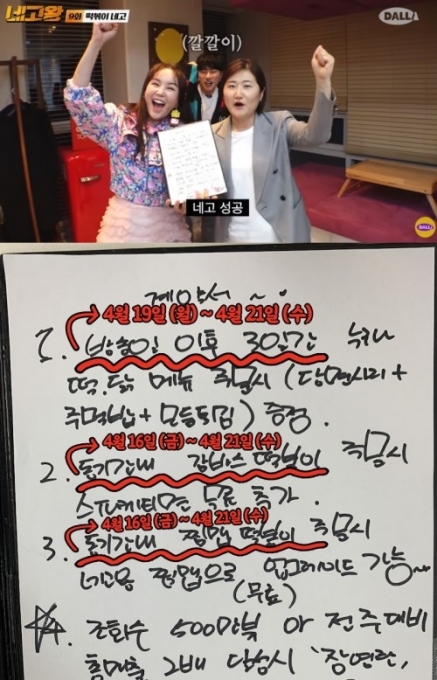 네고왕 9화 떡볶이 네고
DALLA
(깔깔이)
네고 성공
DALLA
계약서
4월 19일 (월) ~ 4월 21일 (수)
1. 방송일 이후 30일간 누구나
떡.닭 메뉴 주문시 (당면사리 +
주먹밥 + 모듬튀김) 증정
4월 16일 (금) ~ 4월 21일 (수)
2. 동기간내 감바스 떡볶이 주문시
스파게티면 무료 추가.
4월 16일 (금) ~ 4월 21일 (수)
3. 동기간내 떡볶이 주문시
업그레이드 가능~
(무료)
조회수 500만뷰 or 전주대비
총매출 2배 달성시 '장영란,